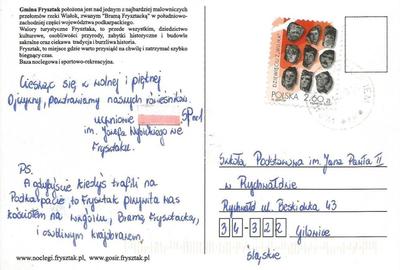 Gmina Frysztak położona jest nad jednym z najbardziej malowniczych
przełomów rzeki Wisłok, zwanym "Bramą Frysztacką" w południowo-
zachodniej części województwa podkarpackiego.
Walory turystyczne Frysztaka, to przede wszystkim, dziedzictwo
kulturowe, osobliwości przyrody, zabytki historyczne i budowle
sakralne oraz ciekawa tradycja i burzliwa historia.
Frysztak, to miejsce gdzie warto przysiąść na chwilę i zatrzymać szybko
biegnący czas.
Baza noclegowa i sportowo-rekreacyjna.
Ciesząc się w wolnej i pięknej
Ojczyzny, pozdrawiamy naszych rówieśników.
uczniowie SP nr 1
im. Józefa we
Frysztaku
PS.
A gdybyście kiedyś trafili na
Podkarpacie to Frysztak przywita Was
kościołem na wzgórzu, Bramą Frysztacką,
i osobliwym krajobrazem.
www.noclegi.frysztak.pl, www.gosir.frysztak.pl
POLSKA 2,60 zł
Szkoła Podstawowa im. Jana Pawła II
w Rychwałdzie
Rychwałd ul. Beskidzka 43
34-322 Gilowice
śląskie